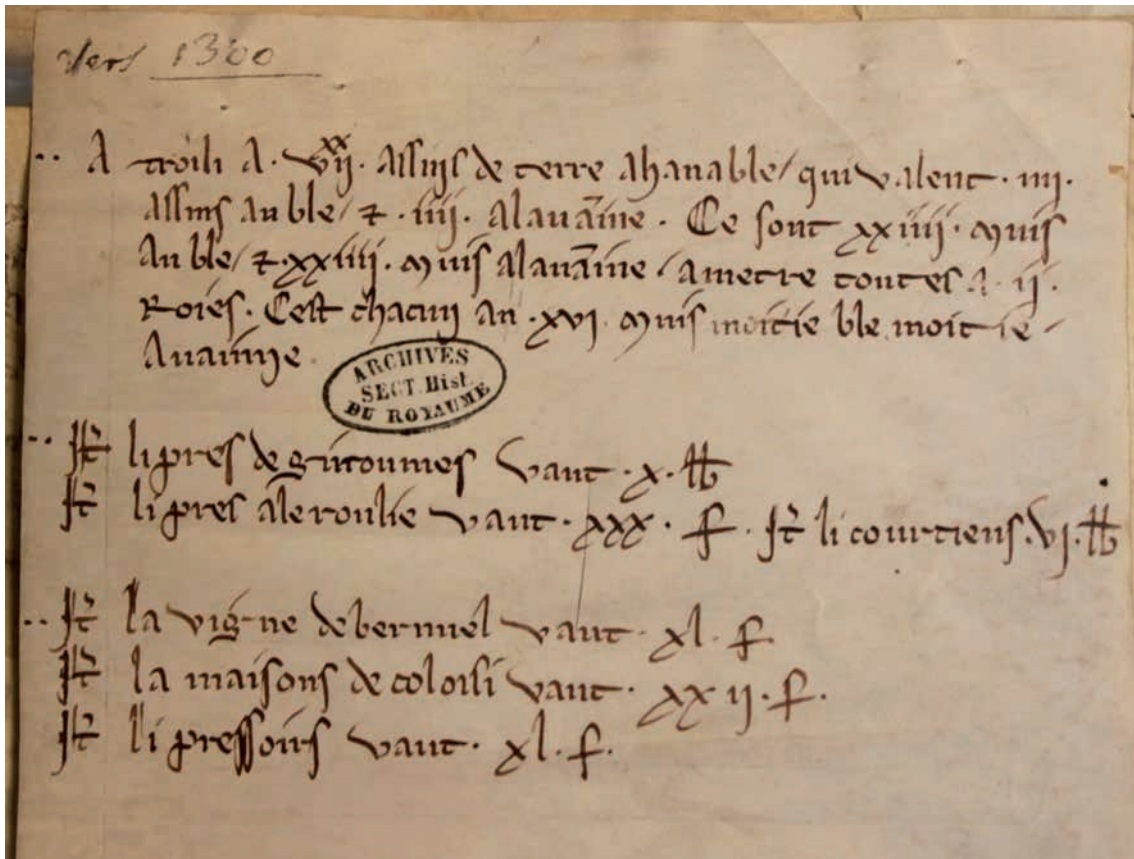 vers 1300
A troili a . vijxx . assijs de terre ahanable / qui valent . iiij .
assins au ble / ⁊ . iiij . alauāine . Ce sont xxiiij . muis
Au ble / ⁊ . xxiiij . muis alauāine / a metre toutes a . ij .
Roies . Cest chacun an . xvi . muis moitie ble moitie
Auainne .
ARCHIVES
SECT. Hist.
DU ROYAUME
It̄ li pres de vaut . x . ℔
It̄ li pres aleroulie vaut . xxx . s . It̄ li courtiens . vj . ℔
It̄ la vigne de vaut . xl . s
It̄ la maisons de coloisi vaut . xxij . s .
It̄ li pressoirs vaut . xl . s .